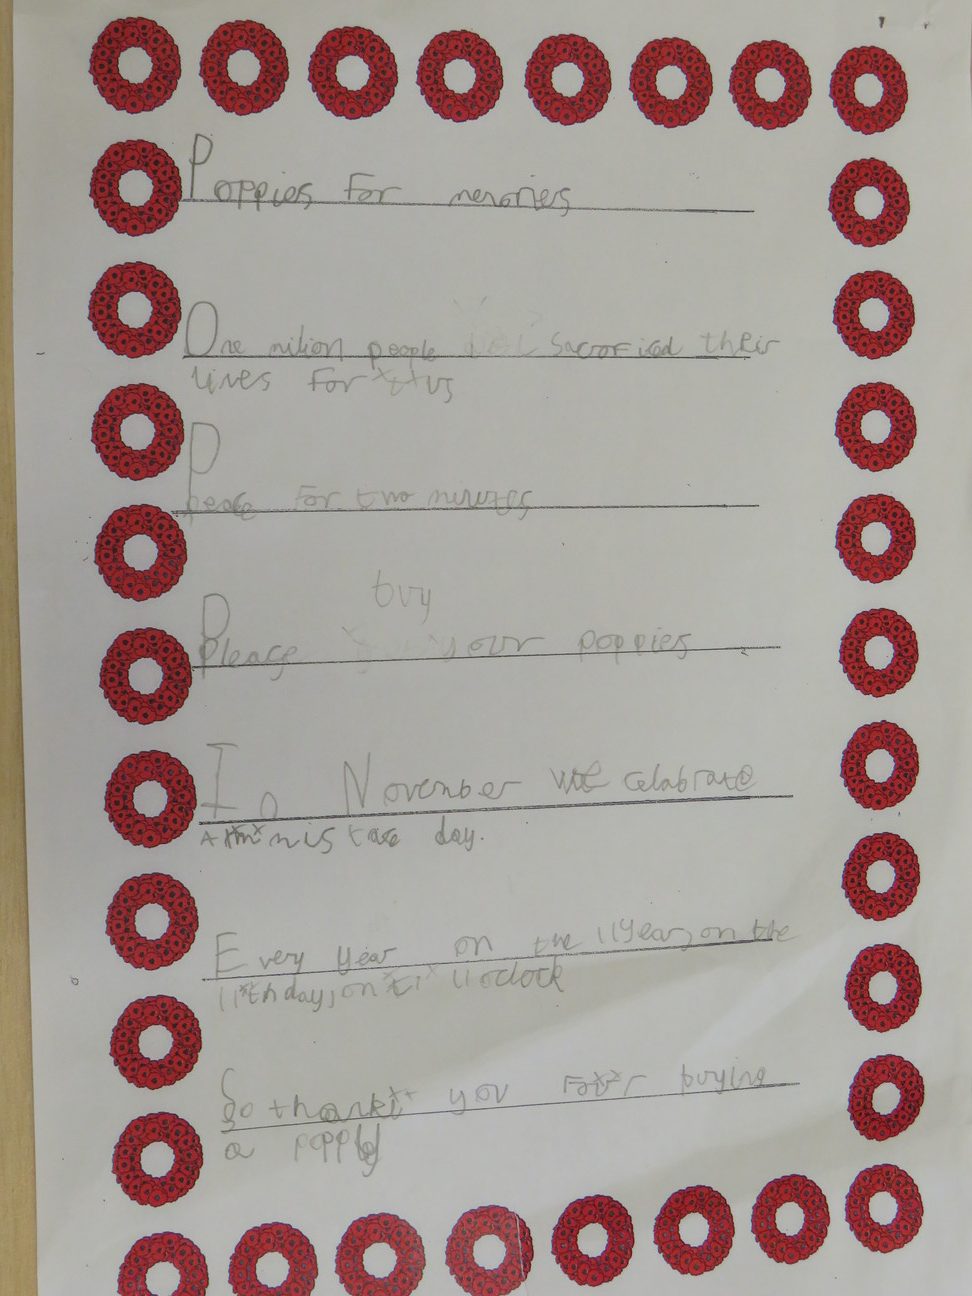 Poppies For memories
One milion people Sacroficed their
lives For us
Peace For two minutes
buy
Please your poppies
In November we celabrate
Arministase day.
Every year on the 11 year, on the
11th day, on 11 oclock
So thank you For buying
a poppy